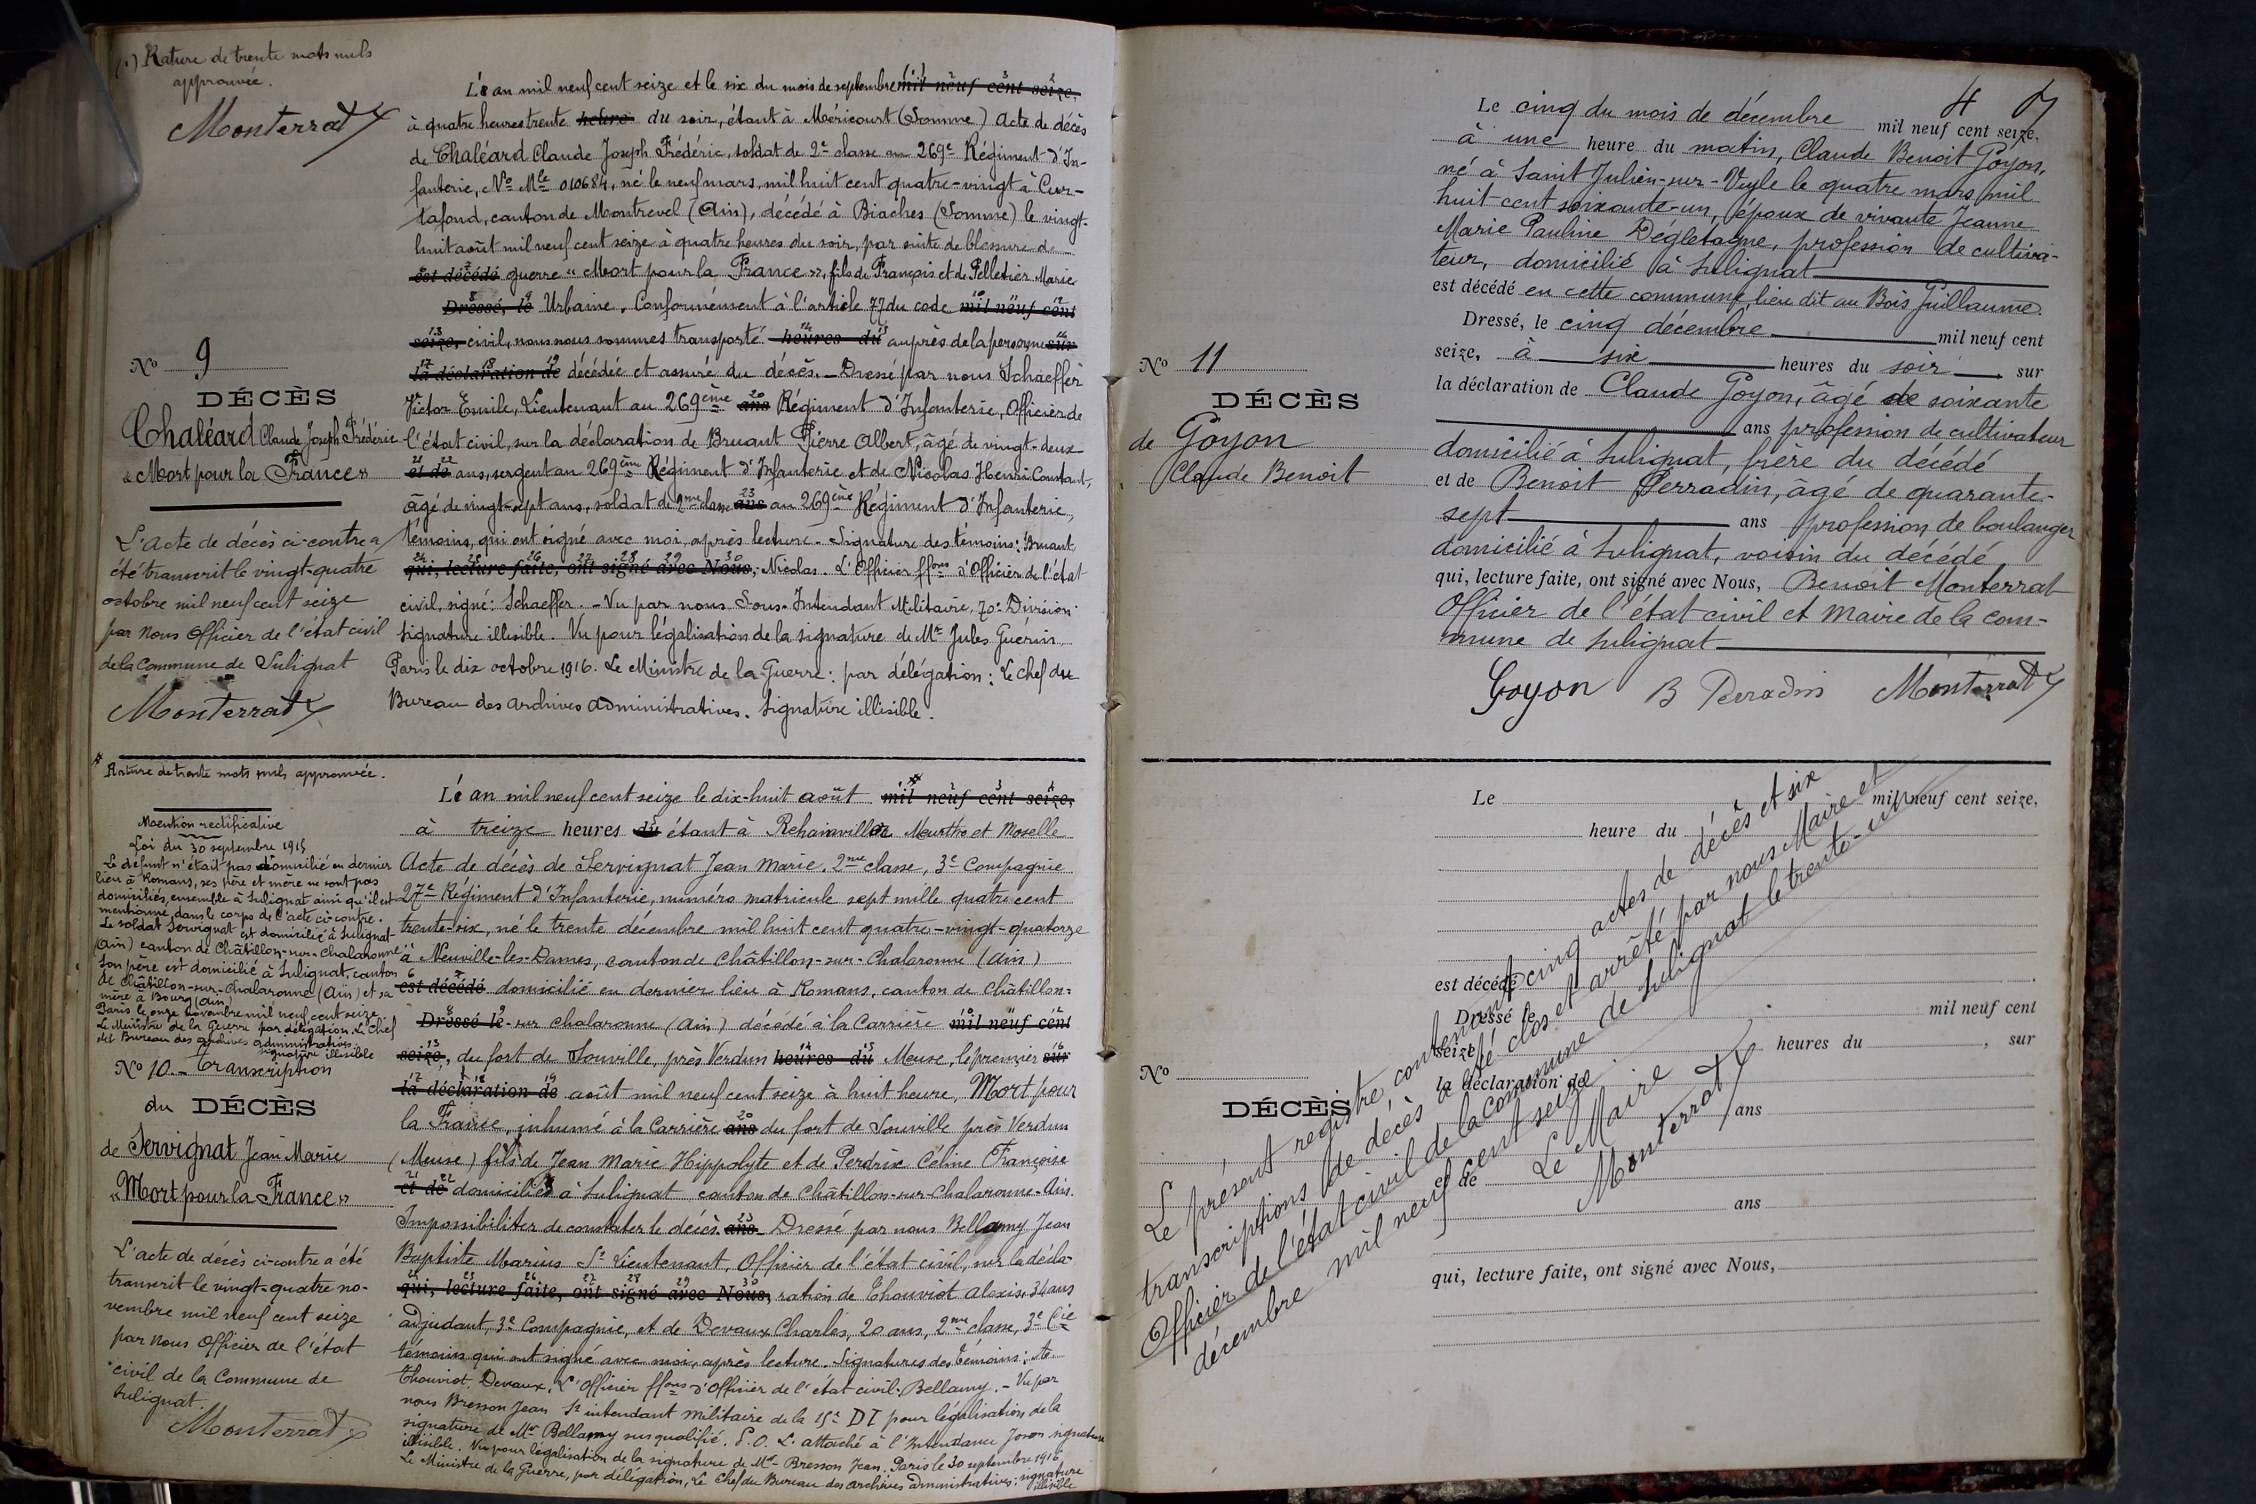 (1) Rature de trente mots nuls
approuvée.
Monterrat
L'an mil neuf cent seize et le six du mois de septembre (1) mil neuf cent seize,
à quatre heures trente heure du soir, étant à Méricourt (Somme) Acte de décès
de Chaléard Claude Joseph Frédéric, soldat de 2e classe au 269e Régiment d'In-
fanterie, No Mle 010684, né le neuf mars, mil huit cent quatre-vingt à Cur-
tafond, canton de Montrevel (Ain), décédé à Biaches (Somme) le vingt-
huit août mil neuf cent seize à quatre heures du soir, par suite de blessure de
est décédé guerre "Mort pour la France", fils de François et de Pelletier Marie
Dressé, le Urbaine. Conformément à l'article 77 du code mil neuf cent
seize, civil, nous nous sommes transporté heures du auprès de la personne sur
la déclaration de décédée et assuré du décès. - Dressé par nous Schaeffer
Victor Emile, Lieutenant au 269ème ans Régiment d'Infanterie, Officier de
l'état civil, sur la déclaration de Bruant Pierre Albert, âgé de vingt-deux
et de ans, sergent au 269ème Régiment d'Infanterie et de Nicolas Henri Constant,
âgé de vingt-sept ans, soldat de 2me classe ans au 269ème Régiment d'Infanterie,
témoins, qui ont signé avec moi, après lecture. - Signature des témoins: Bruant
qui, lecture faite, ont signé avec Nous, Nicolas. L'Officier ffons d'Officier de l'état
civil, signé: Schaeffer. - Vu par nous Sous-Intendant Militaire, 70e Division
signature illisible. Vu pour légalisation de la signature de Mr Jules Guérin
Paris le dix octobre 1916. Le Ministre de la Guerre: par délégation: Le Chef du
Bureau des archives administratives. Signature illisible.
No 9
DÉCÈS
Chaléard Claude Joseph Frédéric
"Mort pour la France"
L'acte de décès ci-contre a
été transcrit le vingt-quatre
octobre mil neuf cent seize
par nous Officier de l'état civil
de la Commune de Sulignat
Monterrat
Rature de trente mots nuls approuvée.
Mention rectificative
Loi du 30 septembre 1915
Le défunt n'était pas domicilié en dernier
lieu à Romans, ses père et mère ne sont pas
domiciliés, ensemble à Sulignat ainsi qu'il est
mentionné dans le corps de l'acte ci-contre.
Le soldat Servignat est domicilié à Sulignat
(Ain) canton de Châtillon-sur-Chalaronne
Son père est domicilié à Sulignat, canton
de Châtillon-sur-Chalaronne (Ain) et sa
mère à Bourg (Ain)
Paris le onze novembre mil neuf cent seize.
Le Ministre de la Guerre par délégation Le Chef
du Bureau des archives administratives.
signature illisible
No 10. - Transcription
du DÉCÈS
de Servignat Jean Marie
"Mort pour la France"
L'acte de décès ci-contre a été
transcrit le vingt-quatre no-
vembre mil neuf cent seize
par nous Officier de l'état
civil de la Commune de
Sulignat.
Monterrat
L'an mil neuf cent seize le dix-huit août mil neuf cent seize,
à treize heures du étant à Rehainviller Meurthe et Moselle
Acte de décès de Servignat Jean Marie. 2me classe, 3e Compagnie
27e Régiment d'Infanterie, numéro matricule sept mille quatre cent
trente-six, né le trente décembre mil huit cent quatre-vingt-quatorze
à Neuville-les-Dames, canton de Châtillon-sur-Chalaronne (Ain)
est décédé domicilié en dernier lieu à Romans, canton de Châtillon-
Dressé le -sur chalaronne (Ain) décédé à la Carrière mil neuf cent
seize, du fort de Souville, près Verdun heures du Meuse, le premier sur
la déclaration de août mil neuf cent seize à huit heure, Mort pour
la France, inhumé à la Carrière ans du fort de Souville près Verdun
(Meuse) fils de Jean Marie Hippolyte et de Perdrix Céline Françoise
et de domiciliés à Sulignat canton de Châtillon-sur-Chalaronne-Ain.
Impossibiliter de constater le décès. ans - Dressé par nous Bellamy Jean
Baptiste Marius St Lieutenant, Officier de l'état civil, sur la décla-
qui, lecture faite, ont signé avec Nous, ration de Thouviot Alexis, 34 ans
adjudant, 3e Compagnie, et de Devaux Charles, 20 ans, 2me classe, 3e Cie
témoins qui ont signé avec moi, après lecture. Signatures des témoins: A
Thouviot. Devaux, L'Officier ffons d'Officier de l'état civil: Bellamy. - Vu par
nous Bresson Jean St intendant militaire de la 15e DI pour légalisation de la
signature de Mr Bellamy sus qualifié. P.O. L'attaché à l'Intendance Joson signature
illisible. Vu pour légalisation de la signature de Mr Bresson Jean. Paris le 30 septembre 1916
Le Ministre de la Guerre, par délégation, Le Chef du Bureau des archives administratives: signature
illisible
4
Le cinq du mois de décembre mil neuf cent seize,
à une heure du matin, Claude Benoit Goyon,
né à Saint Julien-sur-Veyle le quatre mars mil
huit-cent soixante-un, époux de vivante Jeanne
Marie Pauline Dégletagne, profession de cultiva-
teur, domicilié à Sulignat
est décédé en cette commune, lieu dit au Bois Guillaume.
Dressé, le cinq décembre mil neuf cent
seize, à six heures du soir sur
la déclaration de Claude Goyon, âgé de soixante
ans profession de cultivateur
domicilié à Sulignat, frère du décédé
et de Benoit Perradin, âgé de quarante-
sept ans profession de boulanger
domicilié à Sulignat, voisin du décédé
qui, lecture faite, ont signé avec Nous, Benoit Monterrat
Officier de l'état civil et Maire de la com-
mune de Sulignat
Goyon B Perradin Monterrat
No 11
DÉCÈS
de Goyon
Claude Benoit
Le mil neuf cent seize,
heure du
est décédé
Dressé le mil neuf cent
seize, heures du , sur
la déclaration de
ans
et de
ans
qui, lecture faite, ont signé avec Nous,
No
DÉCÈS
Le présent registre, contenant cinq actes de décès et six
transcriptions de décès a été clos et arrêté par nous Maire et
Officier de l'état civil de la Commune de Sulignat le trente-un
décembre mil neuf cent seize
Le Maire
Monterrat